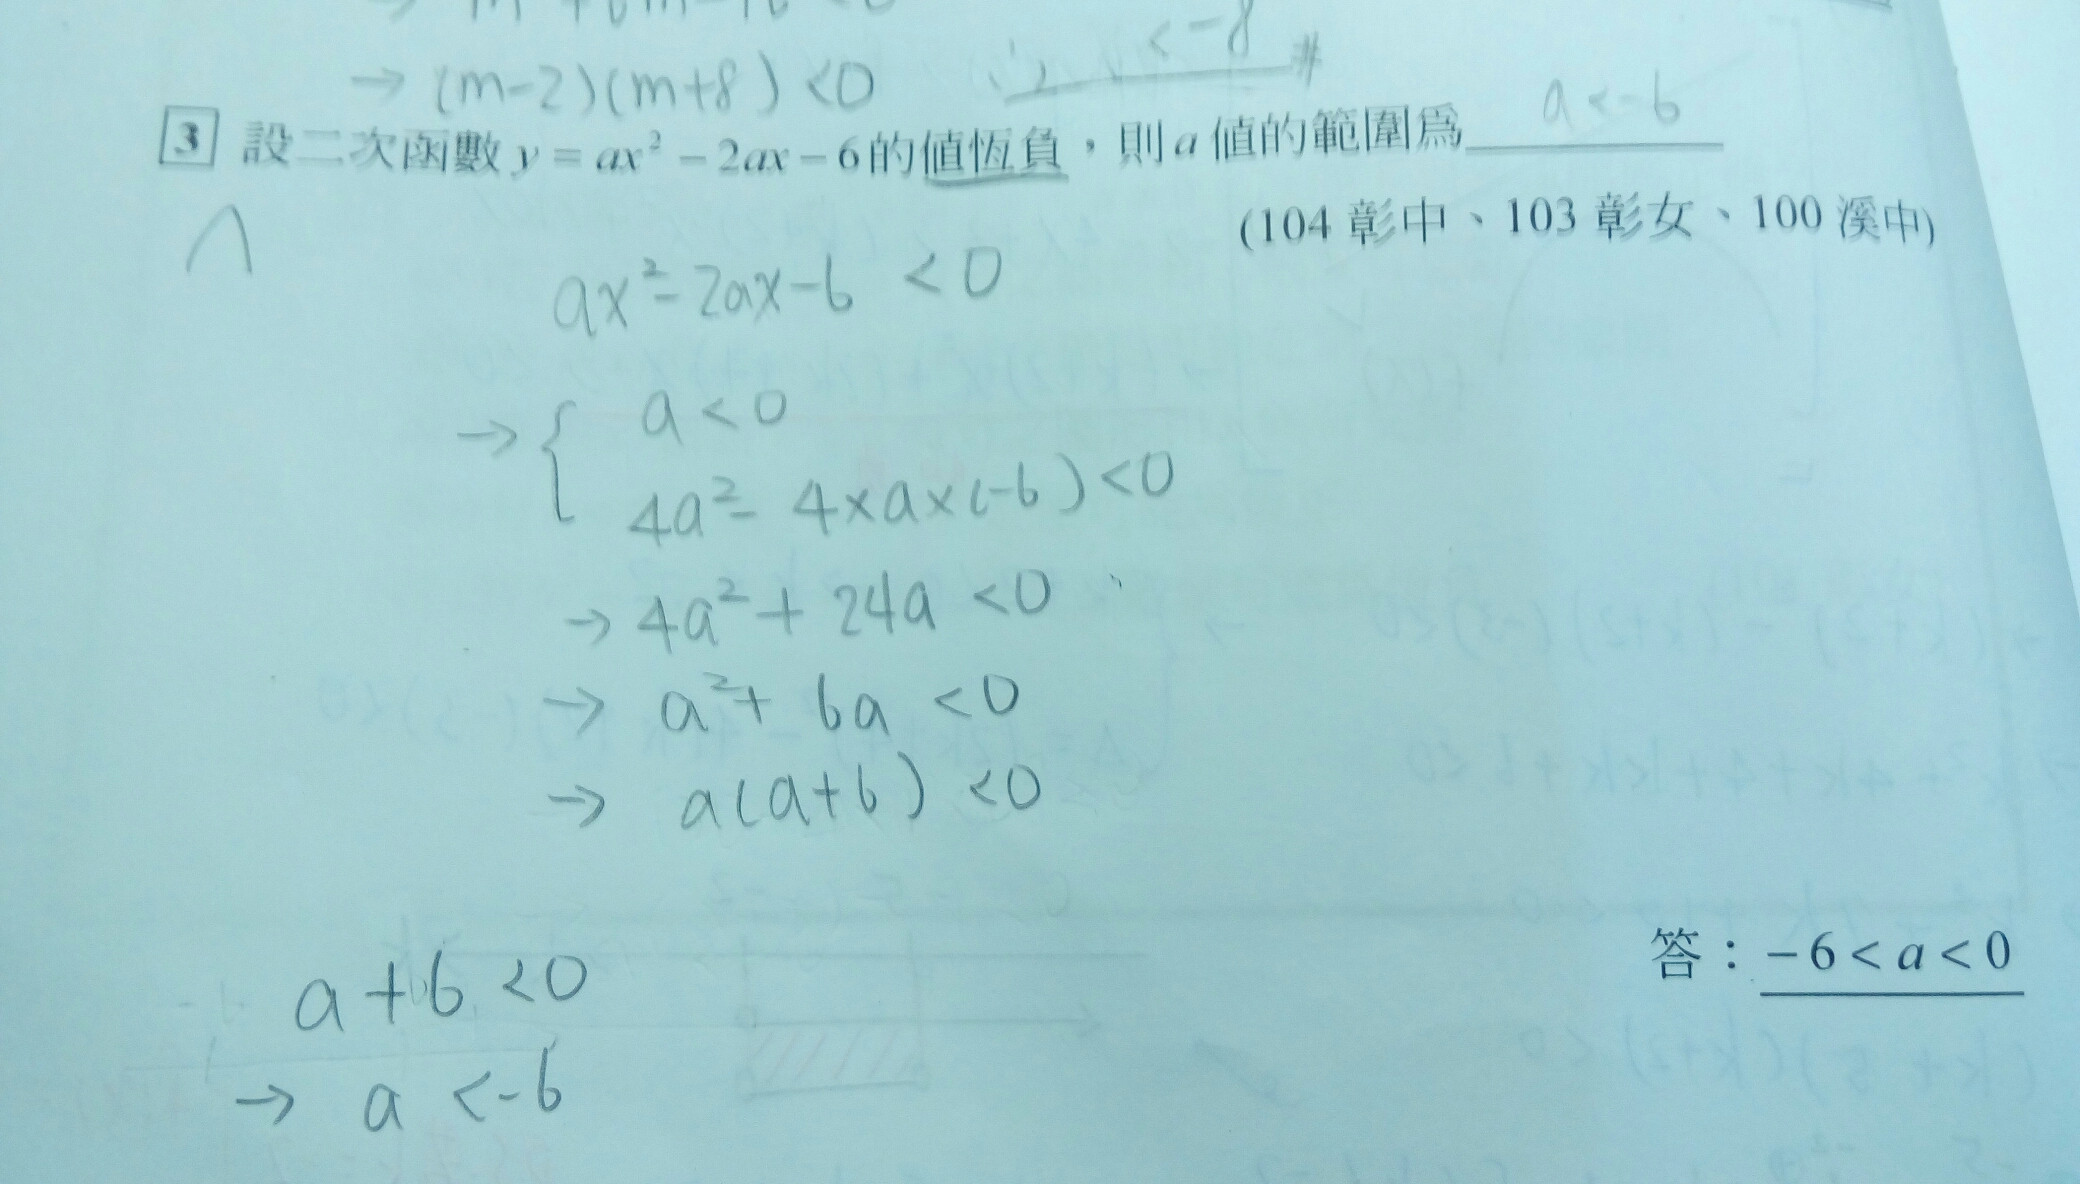 → (m-2)(m+8) <0
< -8
3 設二次函數 y = ax² – 2ax – 6 的值恆負，則 a 值的範圍爲 a<-6
(104 彰中、103 彰女、100 溪中)
ax²-2ax-6 <0
→ { a<0
4a²- 4×a×(-6)<0
→ 4a²+ 24a <0
→ a²+ 6a <0
→ a(a+6) <0
a+6 <0
→ a <-6
答：– 6 < a < 0